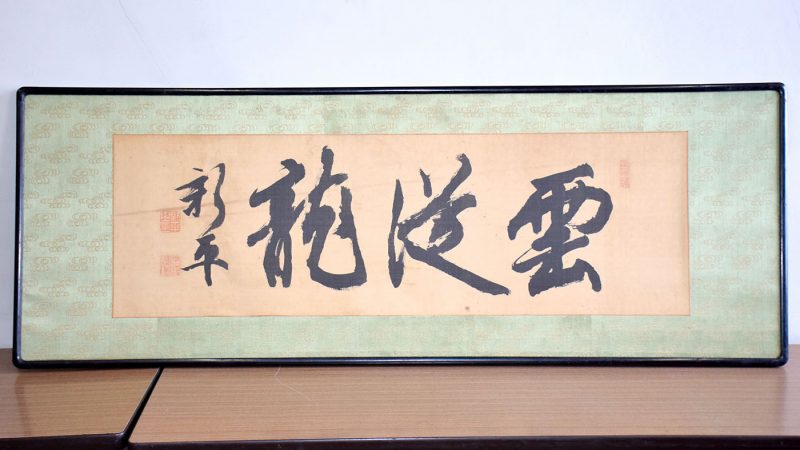 雲從龍
新平